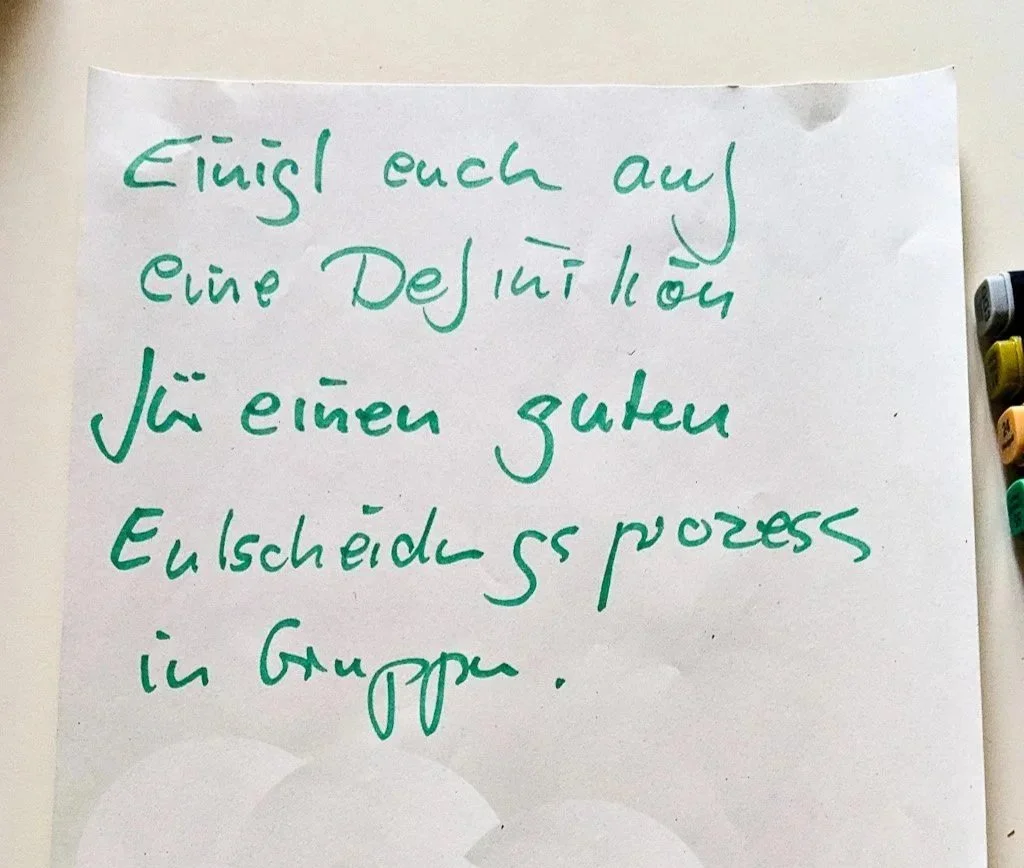 Einigt euch auf
eine Definition
für einen guten
Entscheidungsprozess
in Gruppen.